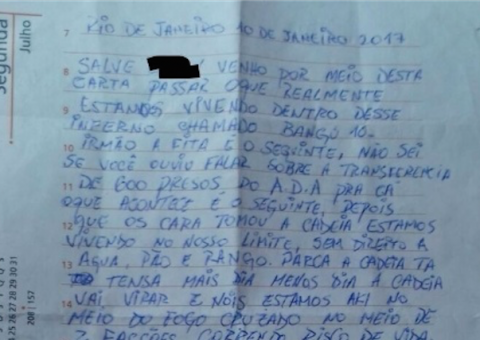 segunda
Julho
7 RIO DE JANEIRO 10 DE JANEIRO 2017
8 SALVE VENHO POR MEIO DESTA
CARTA PASSAR OQUE REALMENTE
9 ESTAMOS VIVENDO DENTRO DESSE
INFERNO CHAMADO BANGÚ 10.
10 IRMÃO A FITA É O SEGUINTE, NÃO SEI
SE VOCÊ OUVIU FALAR SOBRE A TRANSFERENCIA
11 DE 600 PRESOS DO A.D.A PRA CÁ
OQUE ACONTECE É O SEGUINTE, DEPOIS
12 QUE OS CARA TOMOU A CADEIA ESTAMOS
VIVENDO NO NOSSO LIMITE, SEM DIREITO A
13 AGUA, PÃO E RANGO. PARCA A CADEIA TA
TENSA MAIS DIA MENOS DIA A CADEIA
14 VAI VIRAR E NÓIS ESTAMOS AKI NO
MEIO DO FOGO CRUZADO NO MEIO DE
2 FACÇÕES CORRENDO RISCO DE VIDA
25 26 27 28 29 30 31
208 | 157